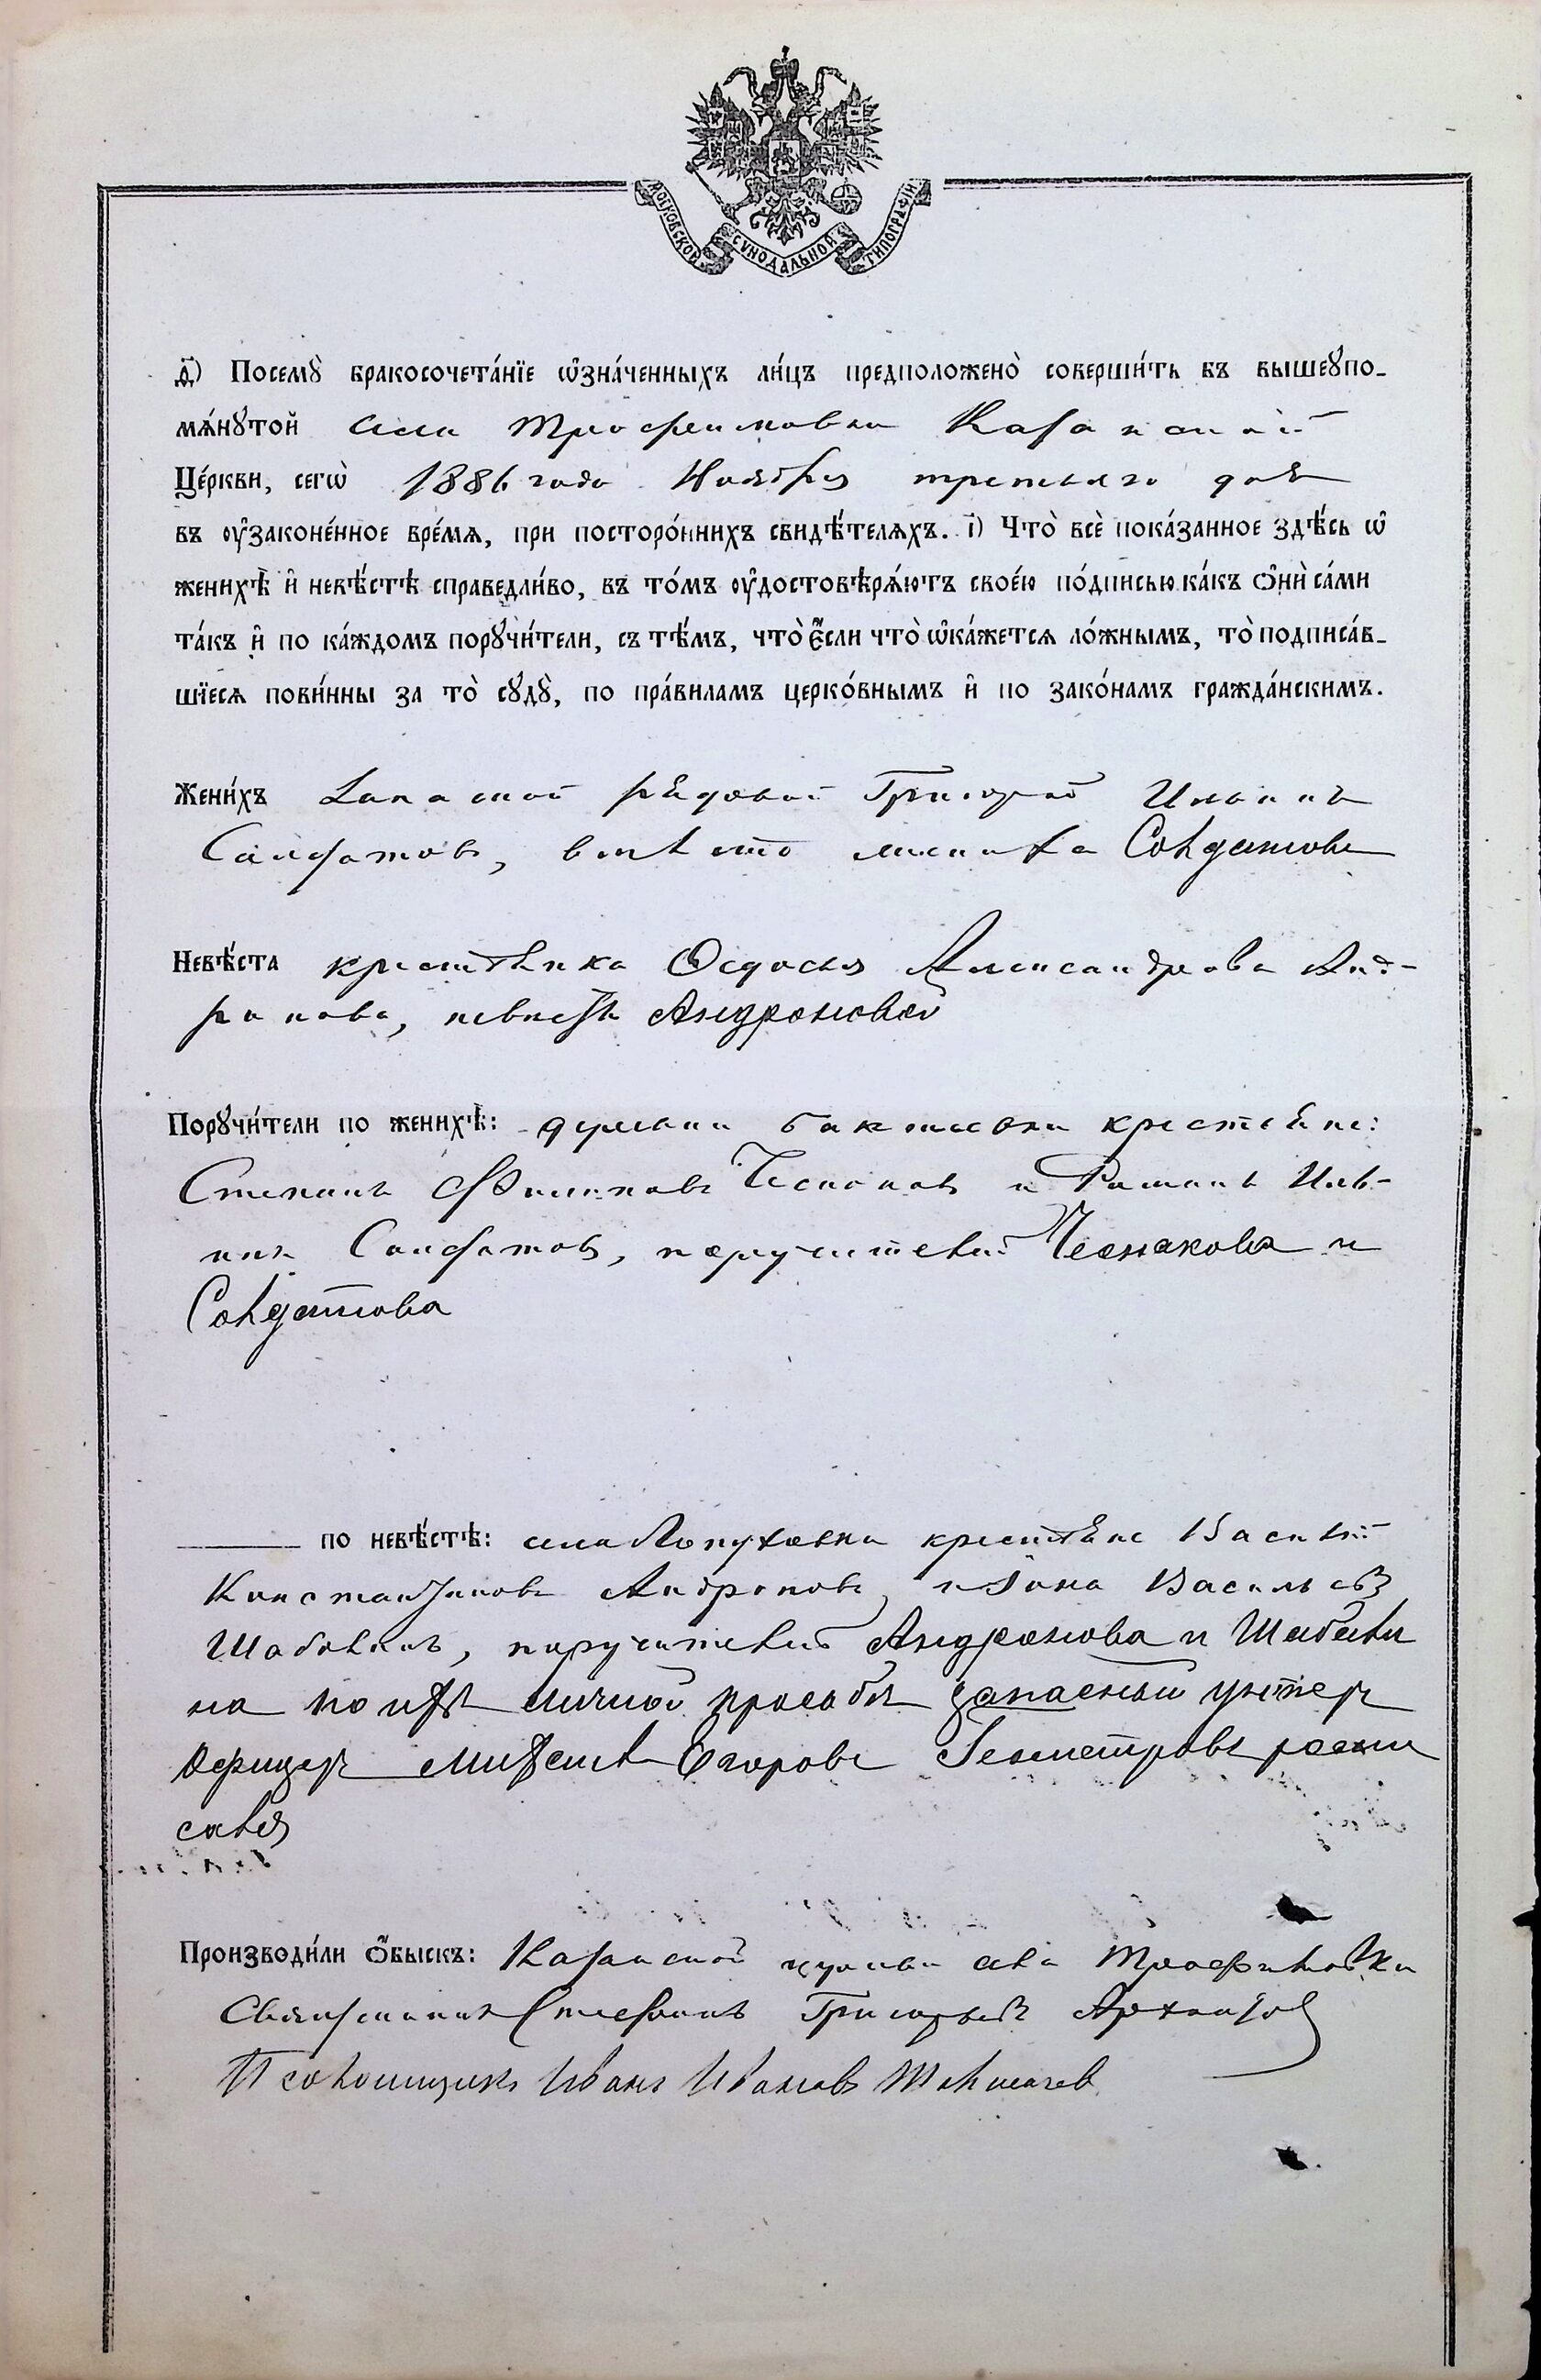 МОСКОВСКОЙ СѴНОДАЛЬНОЙ ТИПОГРАФІИ
д҃) Посемꙋ̀ бракосочета́нїе ѡ҆зна́ченныхъ ли́цъ предположено̀ соверши́ть въ вышеꙋпо-
мѧ́нꙋтой села Трофимовки Казанской
Це́ркви, сегѡ̀ 1886 года Ноября третьяго дня
въ ᲂу҆законе́нное вре́мѧ, при посторо́ннихъ свидѣ́телѧхъ. і҃) Что̀ всѐ пока́занное здѣ́сь ѡ҆
женихѣ̀ и҆ невѣ́стѣ справедли́во, въ то́мъ ᲂу҆достовѣрѧ́ютъ свое́ю по́дписью ка́къ ѻ҆нѝ са́ми
та́къ и҆ по ка́ждомъ порꙋчи́тели, съ тѣ́мъ, что̀ є҆́сли что̀ ѡ҆ка́жетсѧ ло́жнымъ, то̀ подписа́в-
шїесѧ пови́нны за то̀ сꙋдꙋ̀, по пра́виламъ церко́внымъ и҆ по зако́намъ гражда́нскимъ.
Жени́хъ Запасной рядовой Григорій Ильинъ
Солдатовъ, вмѣсто жениха Солдатова
Невѣ́ста крестьянка Ѳедосья Александрова Анд-
ронова, невѣсты Андроновой
Порꙋчи́тели по женихѣ̀: деревни крестьяне:
Степанъ Филиповъ и Романъ Иль-
инъ Солдатовъ, поручителей Чеснакова и
Солдатова
по невѣ́стѣ: села Лопуховки крестьяне Василій
Константиновъ Андроновъ, и Іона Васильевъ
Шабалинъ, поручителей Андронова и Шабали
на по ихъ личной просьбѣ запасный унтеръ
офицеръ Егоровъ роспи
сался
Производи́ли ѻ҆́быскъ: Казанской церкви села Трофимовки
Священникъ Стефанъ Григорьевъ
Псаломщикъ Иванъ Ивановъ